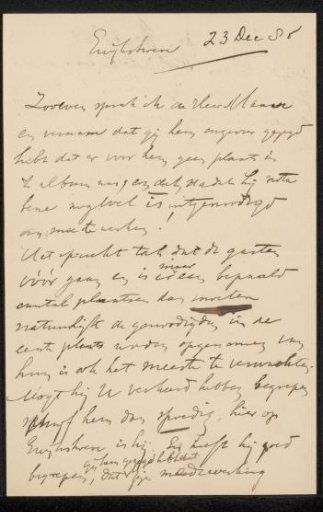 23 Dec 85
Zooeven sprak ik den Heer
en vernam dat gij hem ongeveer gezegd
hebt dat er voor hem geen plaats in
't album was en dat, nadat hij nota
bene nog wel is uitgenoodigd
om mee te werken!
Het spreekt toch dat de gasten
vóór gaan en is er maar een bepaald
aantal plaatsen dan moeten
natuurlijk de genoodigden in de
eerste plaats worden opgenomen van
hun is ook het meeste te verwachten.
Mogt hij U verkeerd hebben begrepen
schrijf hem dan spoedig, hier op
is hij. En heeft hij goed
begrepen, dat gij hem gezegd hebt dat zijn medewerking